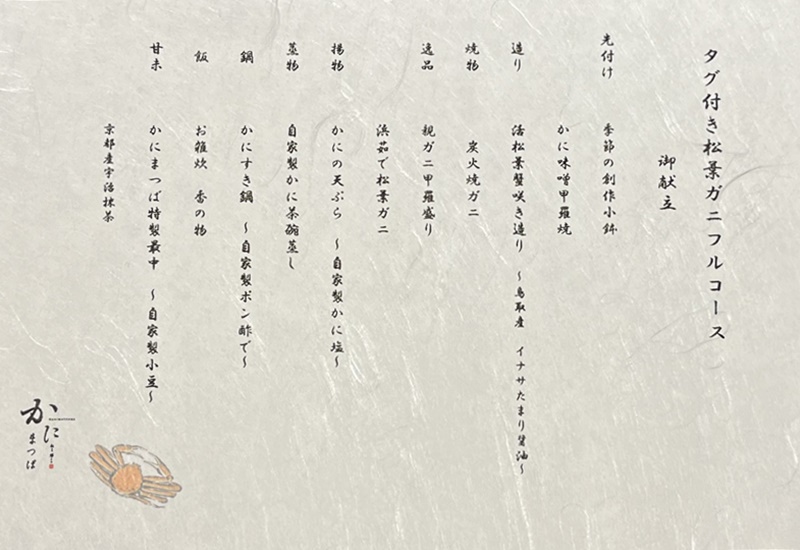 タグ付き松葉ガニフルコース
御献立
先付け 季節の創作小鉢
かに味噌甲羅焼
造り 活松葉蟹咲き造り ～鳥取産 イナサたまり醤油～
焼物 炭火焼ガニ
逸品 親ガニ甲羅盛り
浜茹で松葉ガニ
揚物 かにの天ぷら ～自家製かに塩～
蒸物 自家製かに茶碗蒸し
鍋 かにすき鍋 ～自家製ポン酢で～
飯 お雑炊 香の物
甘未 かにまつば特製最中 ～自家製小豆～
京都産宇治抹茶
かに
まつば